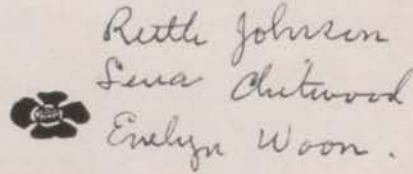 Ruth Johnson
Lena Chitwood
Evelyn Woon.